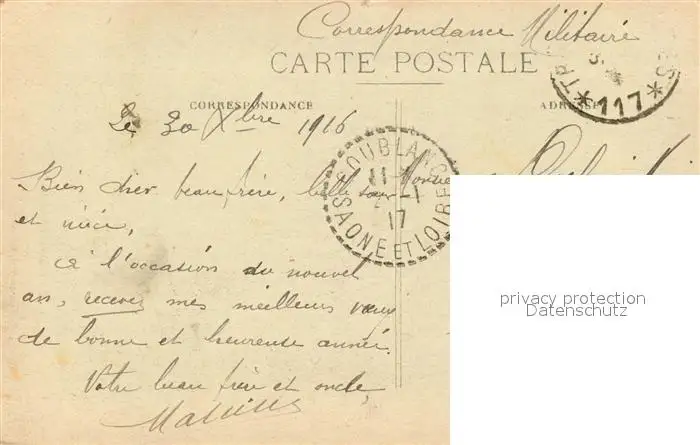 Correspondance Militaire
CARTE POSTALE
CORRESPONDANCE
ADRESSE
*117*
Le 30 Xbre 1916
SOUBLANC
11
17
SAONE ET LOIRE
Bien cher beau frère, belle sœur
et nièce,
à l'occasion du nouvel
an, recevez mes meilleurs vœux
de bonne et heureuse année.
Votre beau frère et oncle,
privacy protection
Datenschutz